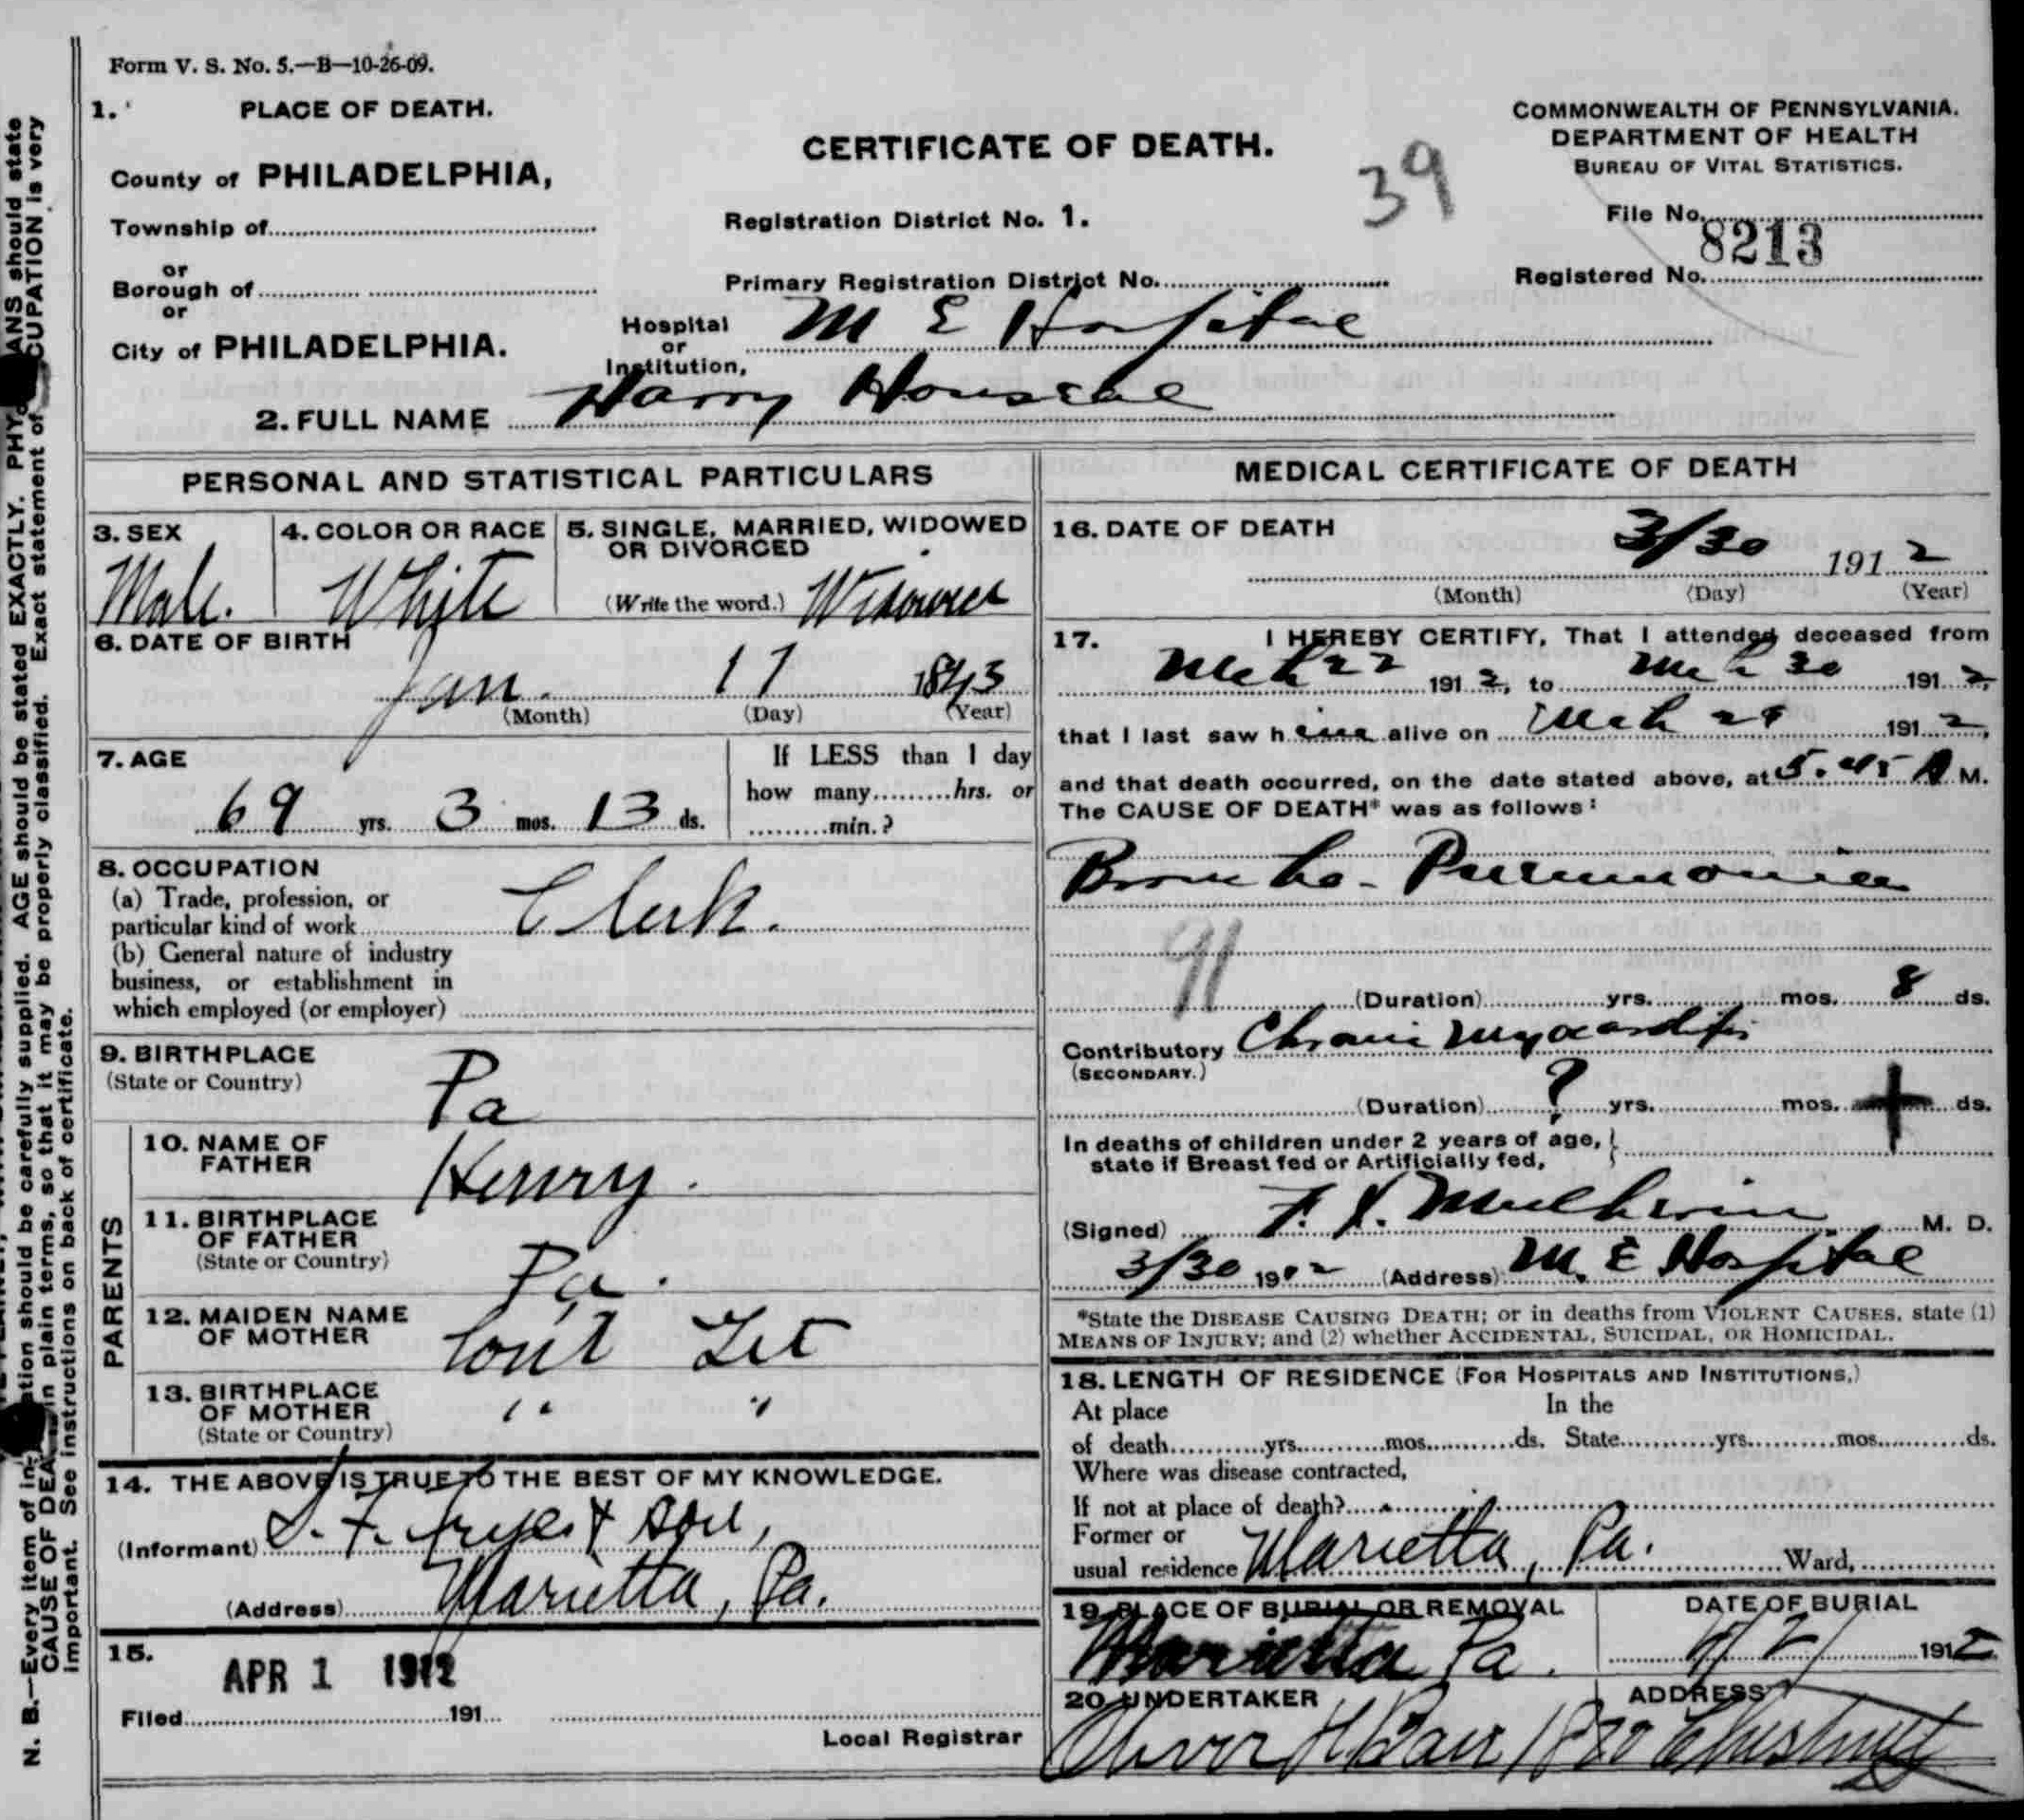 Form V. S. No. 5.—B—10-26-09.
1. PLACE OF DEATH.
County of PHILADELPHIA,
Township of
or
Borough of
or
City of PHILADELPHIA.
CERTIFICATE OF DEATH.
39
Registration District No. 1.
Primary Registration District No.
COMMONWEALTH OF PENNSYLVANIA.
DEPARTMENT OF HEALTH
BUREAU OF VITAL STATISTICS.
File No.
8213
Registered No.
Hospital or Institution, M E Hospital
2. FULL NAME Harry Houseal
PERSONAL AND STATISTICAL PARTICULARS
3. SEX
Male.
4. COLOR OR RACE
White
5. SINGLE, MARRIED, WIDOWED
OR DIVORCED
(Write the word.) Widower
6. DATE OF BIRTH
Jan. 17 1843
(Month) (Day) (Year)
7. AGE
69 yrs. 3 mos. 13 ds.
If LESS than 1 day
how many hrs. or
min.?
8. OCCUPATION
(a) Trade, profession, or
particular kind of work Clerk.
(b) General nature of industry
business, or establishment in
which employed (or employer)
9. BIRTHPLACE
(State or Country) Pa
PARENTS
10. NAME OF
FATHER Henry.
11. BIRTHPLACE
OF FATHER
(State or Country) Pa.
12. MAIDEN NAME
OF MOTHER Con't Get
13. BIRTHPLACE
OF MOTHER " "
(State or Country)
14. THE ABOVE IS TRUE TO THE BEST OF MY KNOWLEDGE.
(Informant) & Son,
(Address) Marietta, Pa.
15.
APR 1 1912
Filed 191
Local Registrar
MEDICAL CERTIFICATE OF DEATH
16. DATE OF DEATH
3/30 1912
(Month) (Day) (Year)
17. I HEREBY CERTIFY, That I attended deceased from
Mch 22 1912, to Mch 30 1912,
that I last saw him alive on Mch 29 1912,
and that death occurred, on the date stated above, at 5.45 A M.
The CAUSE OF DEATH* was as follows:
Broncho-Pneumonia
91
(Duration) yrs. mos. 8 ds.
Contributory Chronic Myocarditis
(SECONDARY.)
(Duration) ? yrs. mos. ds.
In deaths of children under 2 years of age,
state if Breast fed or Artificially fed,
(Signed) M. D.
3/30 1902 (Address) M. E Hospital
*State the DISEASE CAUSING DEATH; or in deaths from VIOLENT CAUSES, state (1)
MEANS OF INJURY; and (2) whether ACCIDENTAL, SUICIDAL, OR HOMICIDAL.
18. LENGTH OF RESIDENCE (FOR HOSPITALS AND INSTITUTIONS,)
At place In the
of death yrs. mos. ds. State yrs. mos. ds.
Where was disease contracted,
If not at place of death?
Former or
usual residence Marietta, Pa. Ward,
19 PLACE OF BURIAL OR REMOVAL
Marietta Pa.
DATE OF BURIAL
4/2/ 1912
20 UNDERTAKER
Oliver H Bair
ADDRESS
1820 Chestnut
N. B.—Every item of information should be carefully supplied. AGE should be stated EXACTLY. PHYSICIANS should state
CAUSE OF DEATH in plain terms, so that it may be properly classified. Exact statement of OCCUPATION is very
important. See instructions on back of certificate.